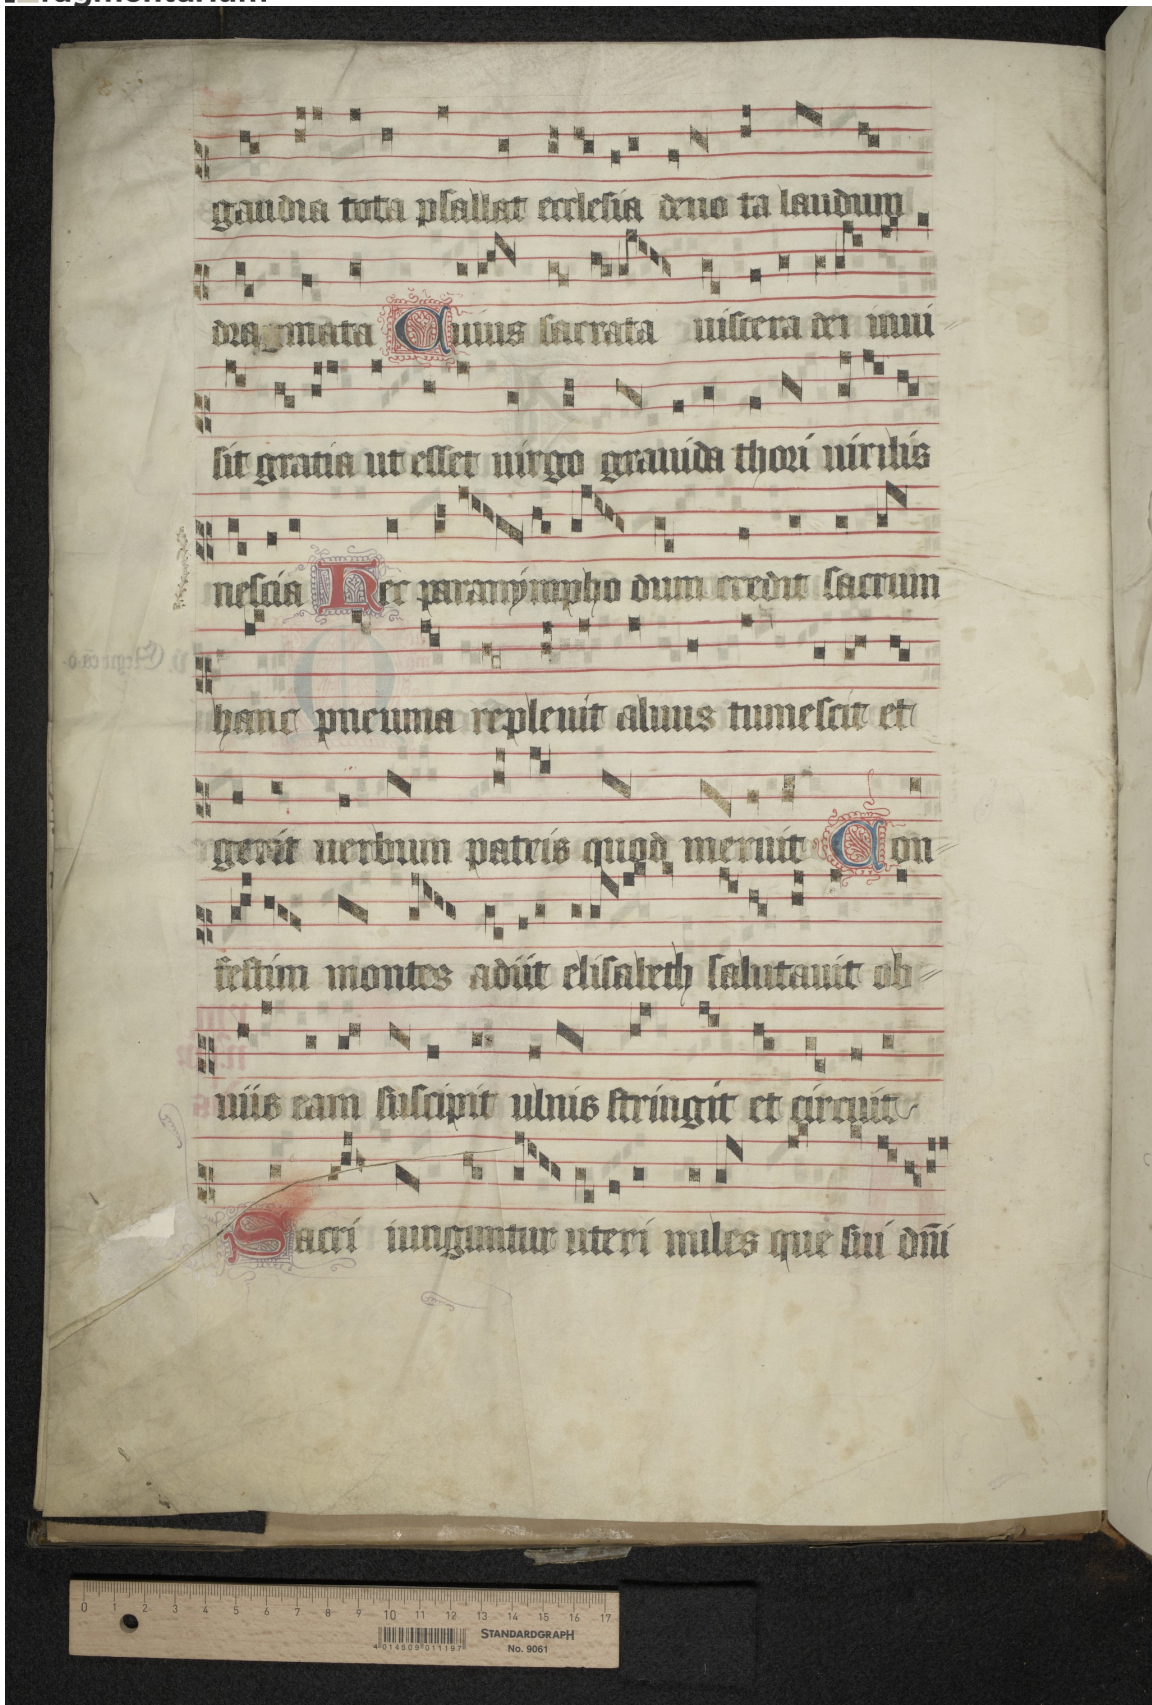 gaudia tota psallat ecclesia deuo ta laudum
dragmata Cuius sacrata uiscera dei inui
sit gratia ut esset uirgo grauida thori uirilis
nescia Hec paranÿmpho dum credit sacrum
hanc pneuma repleuit aluus tumescit et
gerit uerbum patris quod meruit Con
festim montes adiit elisabeth salutauit ob
uiis eam suscipit ulnis stringit et circuit
Sacri iunguntur uteri miles que sui dñi
0 1 2 3 4 5 6 7 8 9 10 11 12 13 14 15 16 17
STANDARDGRAPH
4 014509 011197
No. 9061